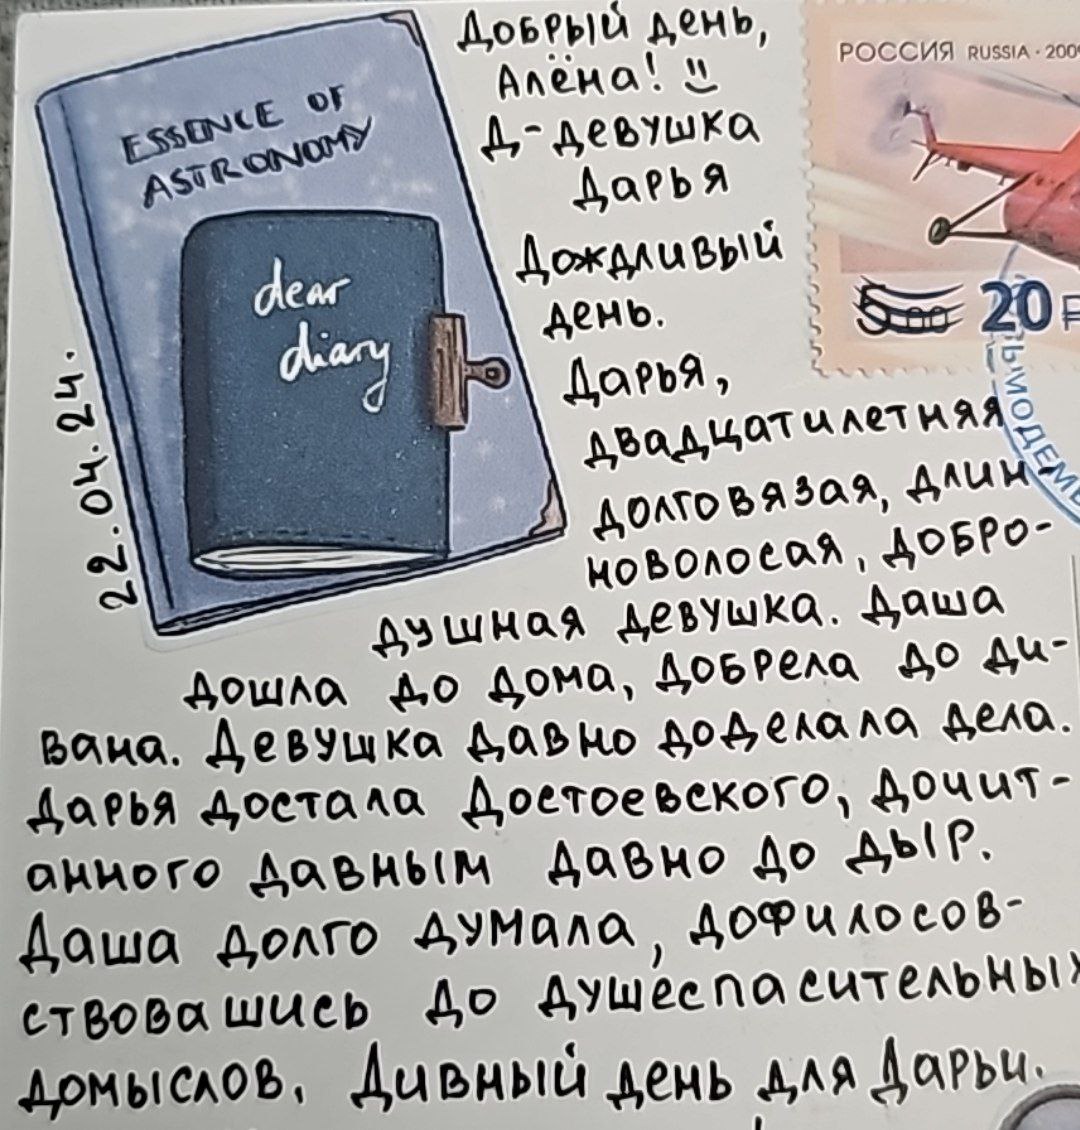 Добрый день,
Алёна!
Д-девушка
Дарья
Дождливый
день.
Дарья,
двадцатилетняя
долговязая, длин-
новолосая, добро-
душная девушка. Даша
дошла до дома, добрела до ди-
вана. Девушка давно доделала дела.
Дарья достала Достоевского, дочит-
анного давным давно до дыр.
Даша долго думала, дофилосов-
ствовашись до душеспасительных
домыслов. Дивный день для Дарьи.
22.04.24.
ESSENCE OF
ASTRONOMY
dear
diary
РОССИЯ RUSSIA · 2009
5.00 20 ₽